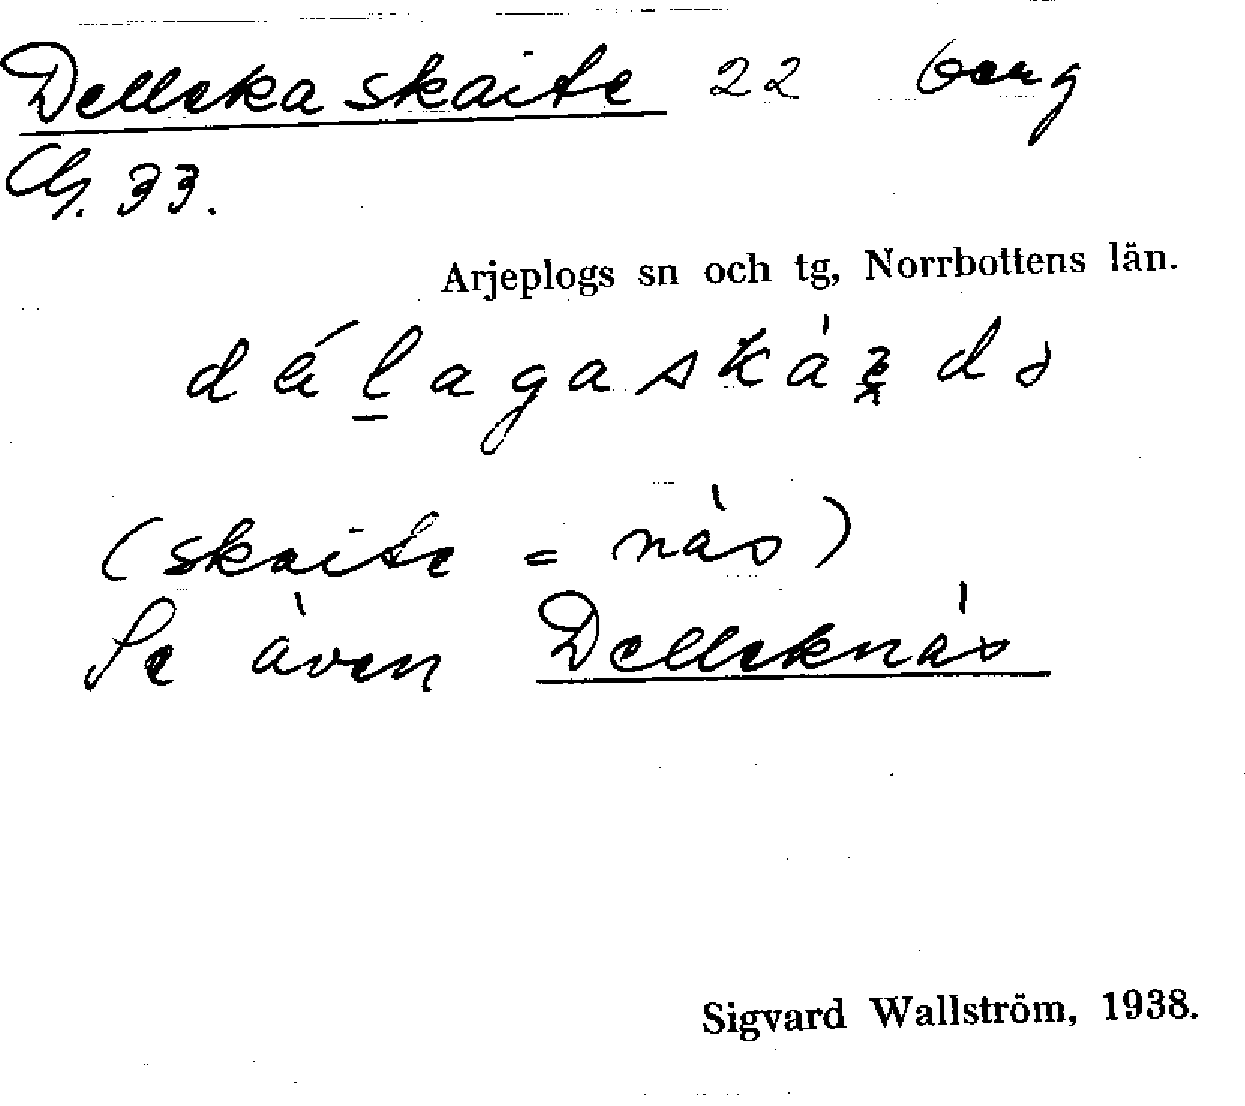 Delleka skaite 22 berg
G. 33.
Arjeplogs sn och tg, Norrbottens län.
(skaite = näs)
Se även Delleknäs
Sigvard Wallström, 1938.